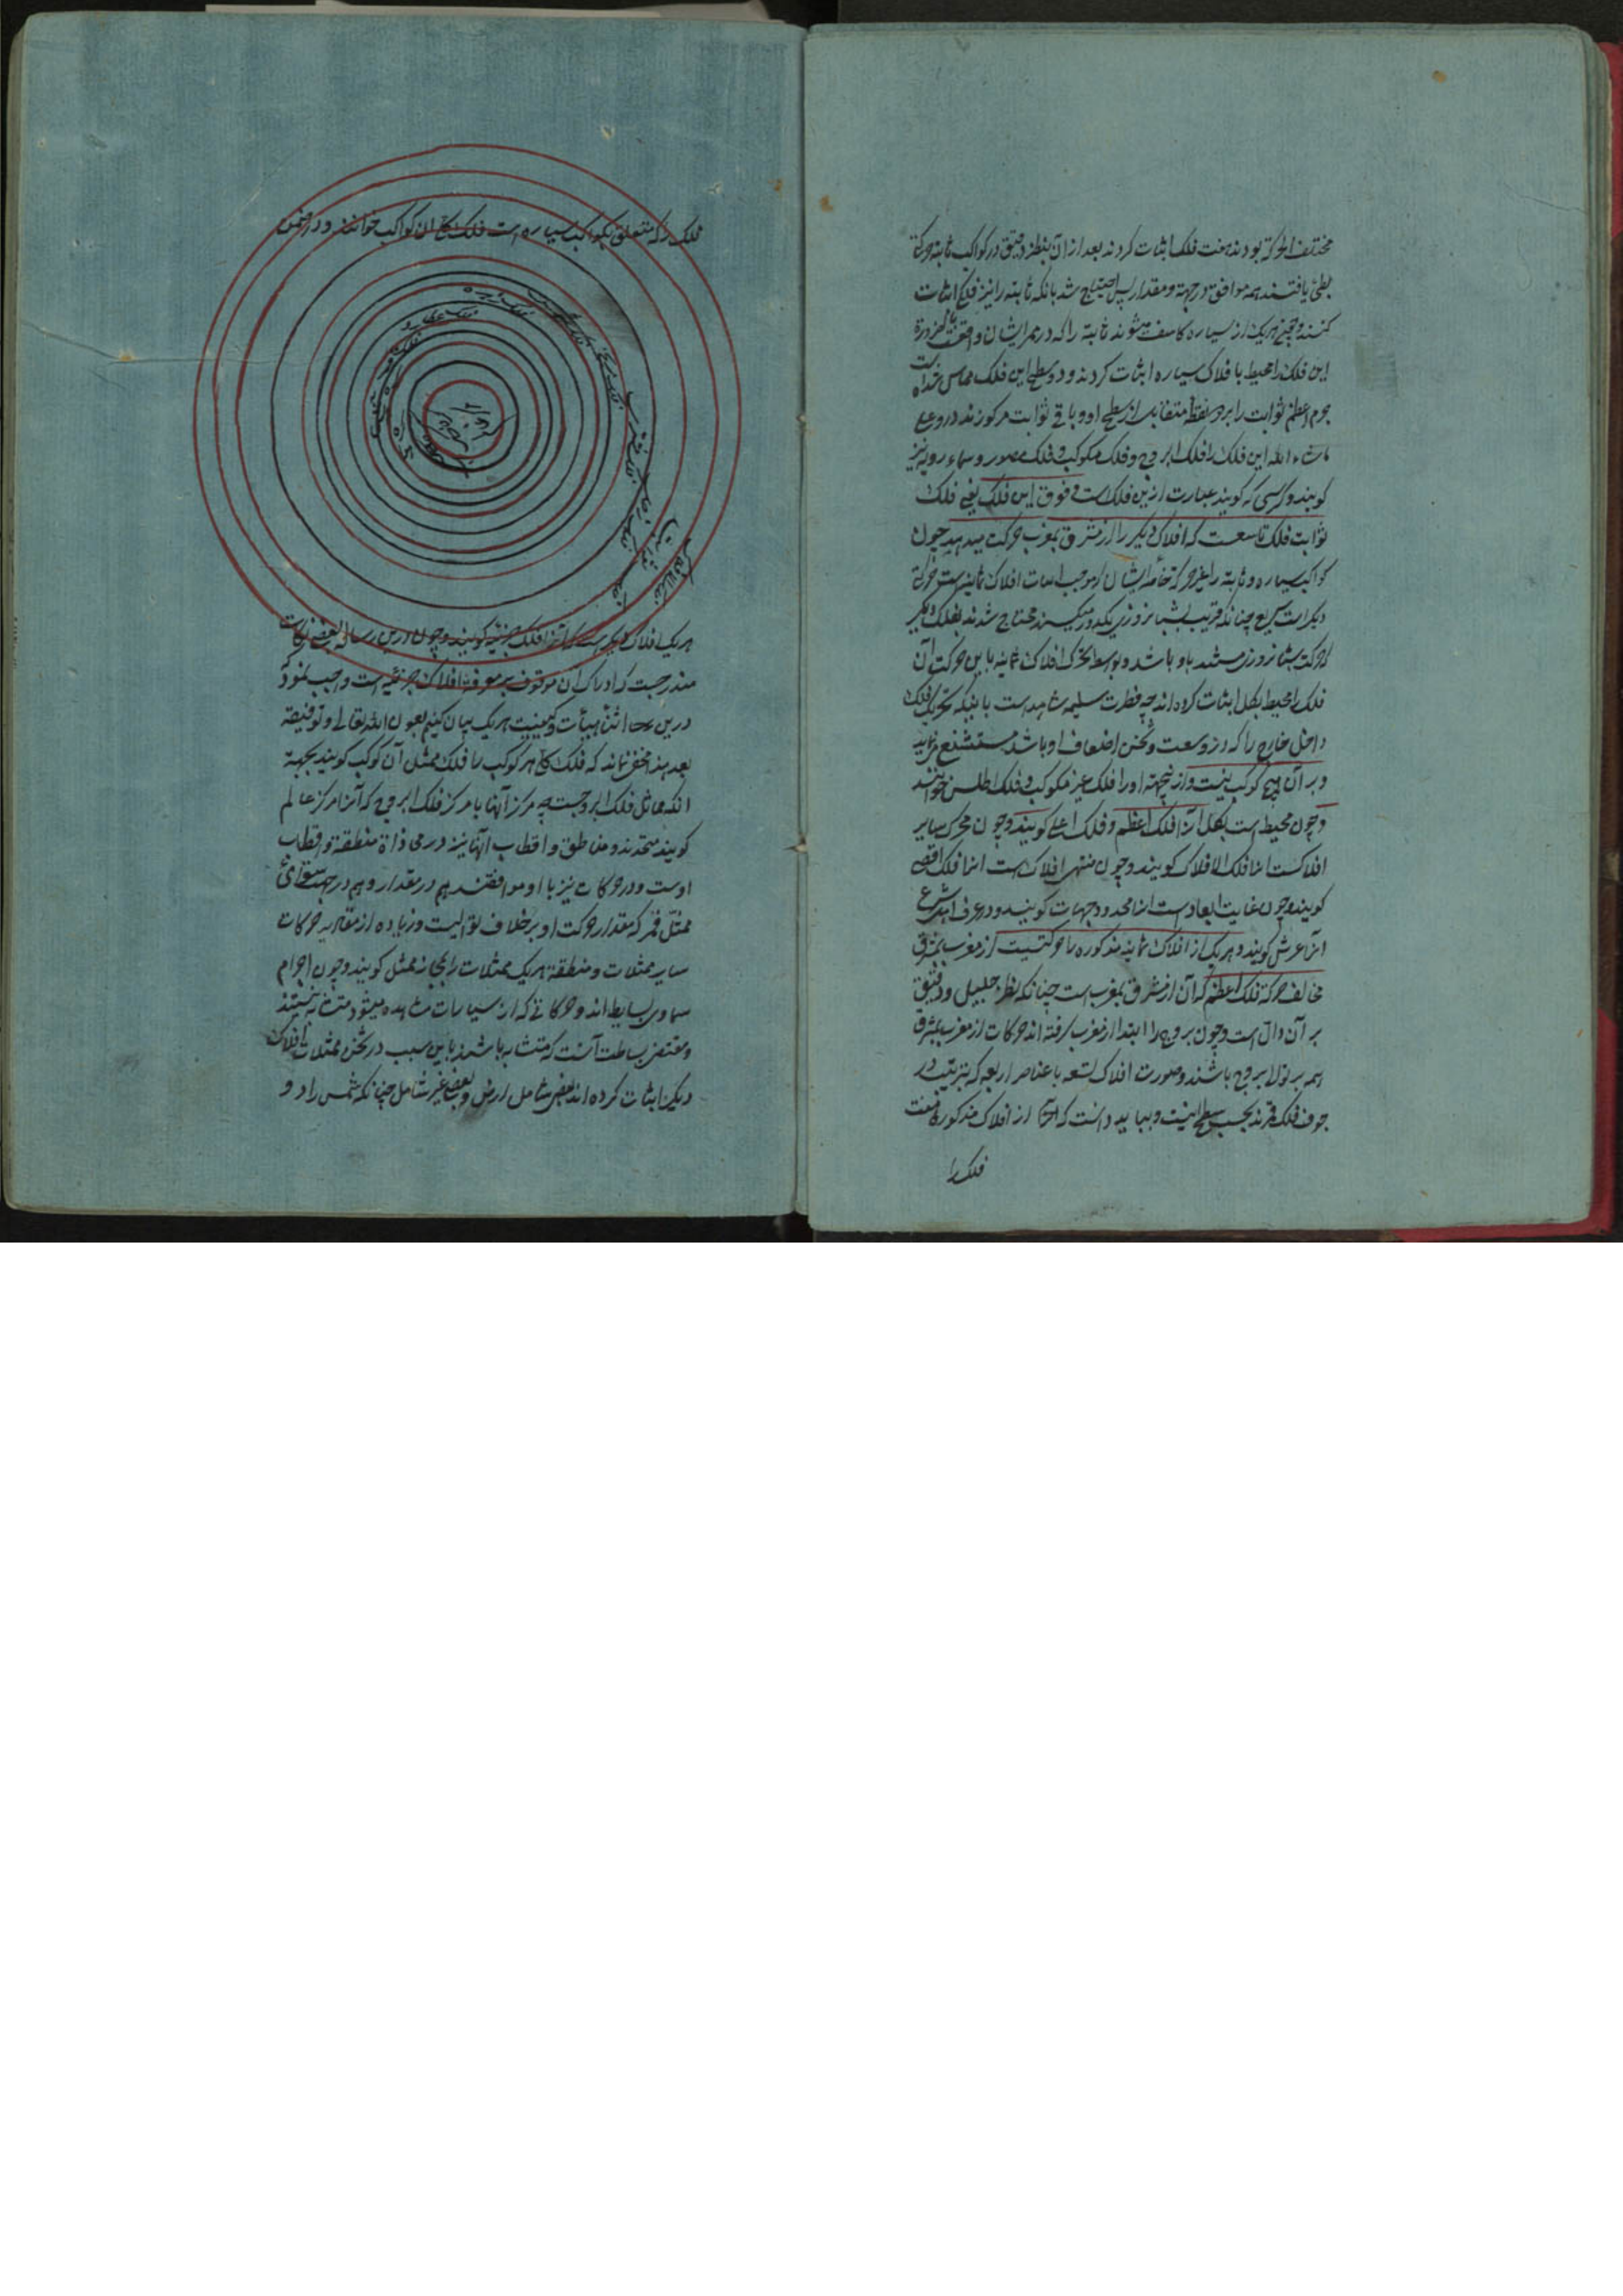 مختلف الحرکة بودند هفت فلک اثبات کردند بعد از آن بنظر دقیق در کواکب ثابته حرکة
بطئ یافتند همه موافق در جهة و مقدار پس احتیاج شد بانکه ثابته را نیز فلکی اثبات
کنند و نیز هریک از سیاره کاسف میشوند ثابته را که در ممر ایشان واقعند
این فلک را محیط بافلاک سیاره اثبات کردند و دو سطح این فلک مماس
جرم اعظم ثوابت را بر دو نقطه متقابله از سطح او و باقی ثوابت مرکوزند در وی علی
ماشاء الله این فلک را فلک البروج و فلک مکوکب و فلک مصور و سماء رویه نیز
کویند و کرسی که کویند عبارت ازین فلک است و فوق این فلک یعنی فلک
ثوابت فلک تاسعست که افلاک دیکر را از مشرق بمغرب حرکت میدهد چون
کواکب سیاره و ثابته را غیر حرکة خاصه ایشان که موجب اثبات افلاک ثمانیه است حرکة
دیکر است سریع چنانکه قریب بشبانروزی یکدور میکنند محتاج شدند بفلک دیکر
که حرکت شبانروزی مستند باو باشد و بواسطه تحرک افلاک ثمانیه باین حرکت آن
فلک را محیط بکل اثبات کرده اند چه فطرت سلیمه شاهد است باینکه تحریک فلک
داخل خارج را که در وسعت و ثخن اضعاف او باشد مستشنع مینماید
و بر آن هیچ کوکب نیست و ازینجهة او را فلک غیر مکوکب و فلک اطلس خوانند
و چون محیط است بکل آنرا فلک اعظم و فلک اعلی کویند و چون محرک سایر
افلاکست انرا فلک الافلاک کویند و چون منتهی افلاک است انرا فلک اقصی
کویند و چون غایت ابعاد است انرا محدد جهات کویند و در عرف اهل شرع
انرا عرش کویند و هریک از افلاک ثمانیه مذکوره را حرکتیست از مغرب بمشرق
مخالف حرکة فلک اعظم که آن از مشرق بمغرب است چنانکه نظر جلیل و دقیق
بر آن دال است و چون بروج را ابتدا از مغرب کرفته اند حرکات از مغرب بمشرق
همه بر توالی بروج باشند و صورت افلاک تسعه با عناصر اربعه که بترتیب در
جوف فلک قمرند بحسب سطح اینست و بباید دانست که از افلاک مذکوره هفت
فلک را
فلک را که متعلق بکواکب سیاره است فلک کلی ان کواکب خوانند و در ضمن
هریک افلاک دیکر هست که انرا فلک جزئیه کویند و چون درین رساله بعضی
مندرجست که ادراک ان موقوف بر معرفة افلاک جزئیه است واجب نمود که
درین اثنا هیأت و کیفیت هریک بیان کنیم بعون الله تعالی و توفیقه
بعد هذا مخفی نماند که فلک کلی هر کوکب را فلک ممثل آن کوکب کویند بجهة
انکه مماثل فلک البروجست چه مرکز آنها با مرکز فلک البروج که آنرا مرکز عالم
کویند متحدند و مناطق و اقطاب آنها نیز در محاذاة منطقه و اقطاب
اوست و در حرکات نیز با او موافقند هم در مقدار و هم در جهت سوای
ممثل قمر که مقدار حرکت او بر خلاف توالیست و زیاده از مقادیر حرکات
سایر ممثلات و منطقه هریک ممثلات را مجازا ممثل کویند و چون اجرام
سماوی بسایط اند و حرکاتی که از سیارات مشاهده میشود متشابه نیستند
و مقتضی بساطت آنست که متشابه باشند باین سبب در ثخن ممثلات افلاک
دیکر اثبات کرده اند بعضی شامل ارض و بعضی غیر شامل چنانکه شمس را دو